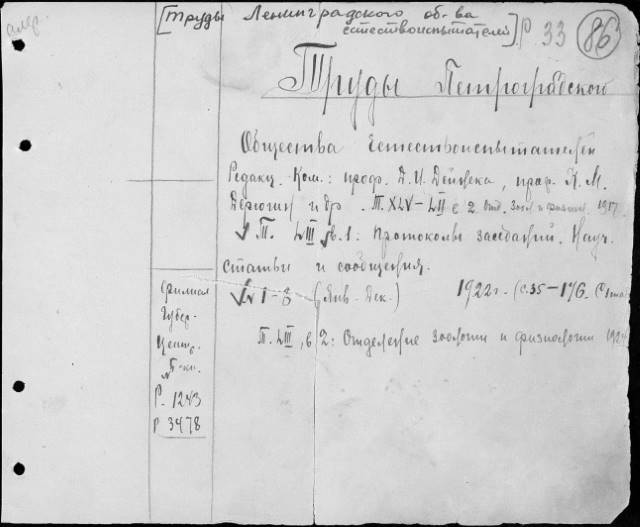 [Труды Ленинградского об-ва
естествоиспытателей]. Р 33 (86)
Труды Петроградского
Общества Естествоиспытателей
Редакц. Ком.: проф. Д. И. Дейнека, проф. К. М.
Дерюгин и др. Т. XLV-LII в 2. Отд. Зоол. и физиол. 1917
Т. LIII в. 1: Протоколы заседаний. Науч.
статьи и сообщения.
№ 1-8 (Янв.-Дек.) 1922 г. (с. 35-176.
Т. LIII, в 2: Отделение зоологии и физиологии
филиал
Губер.
Центр.
Б-ки.
Р. 1243
Р 3478